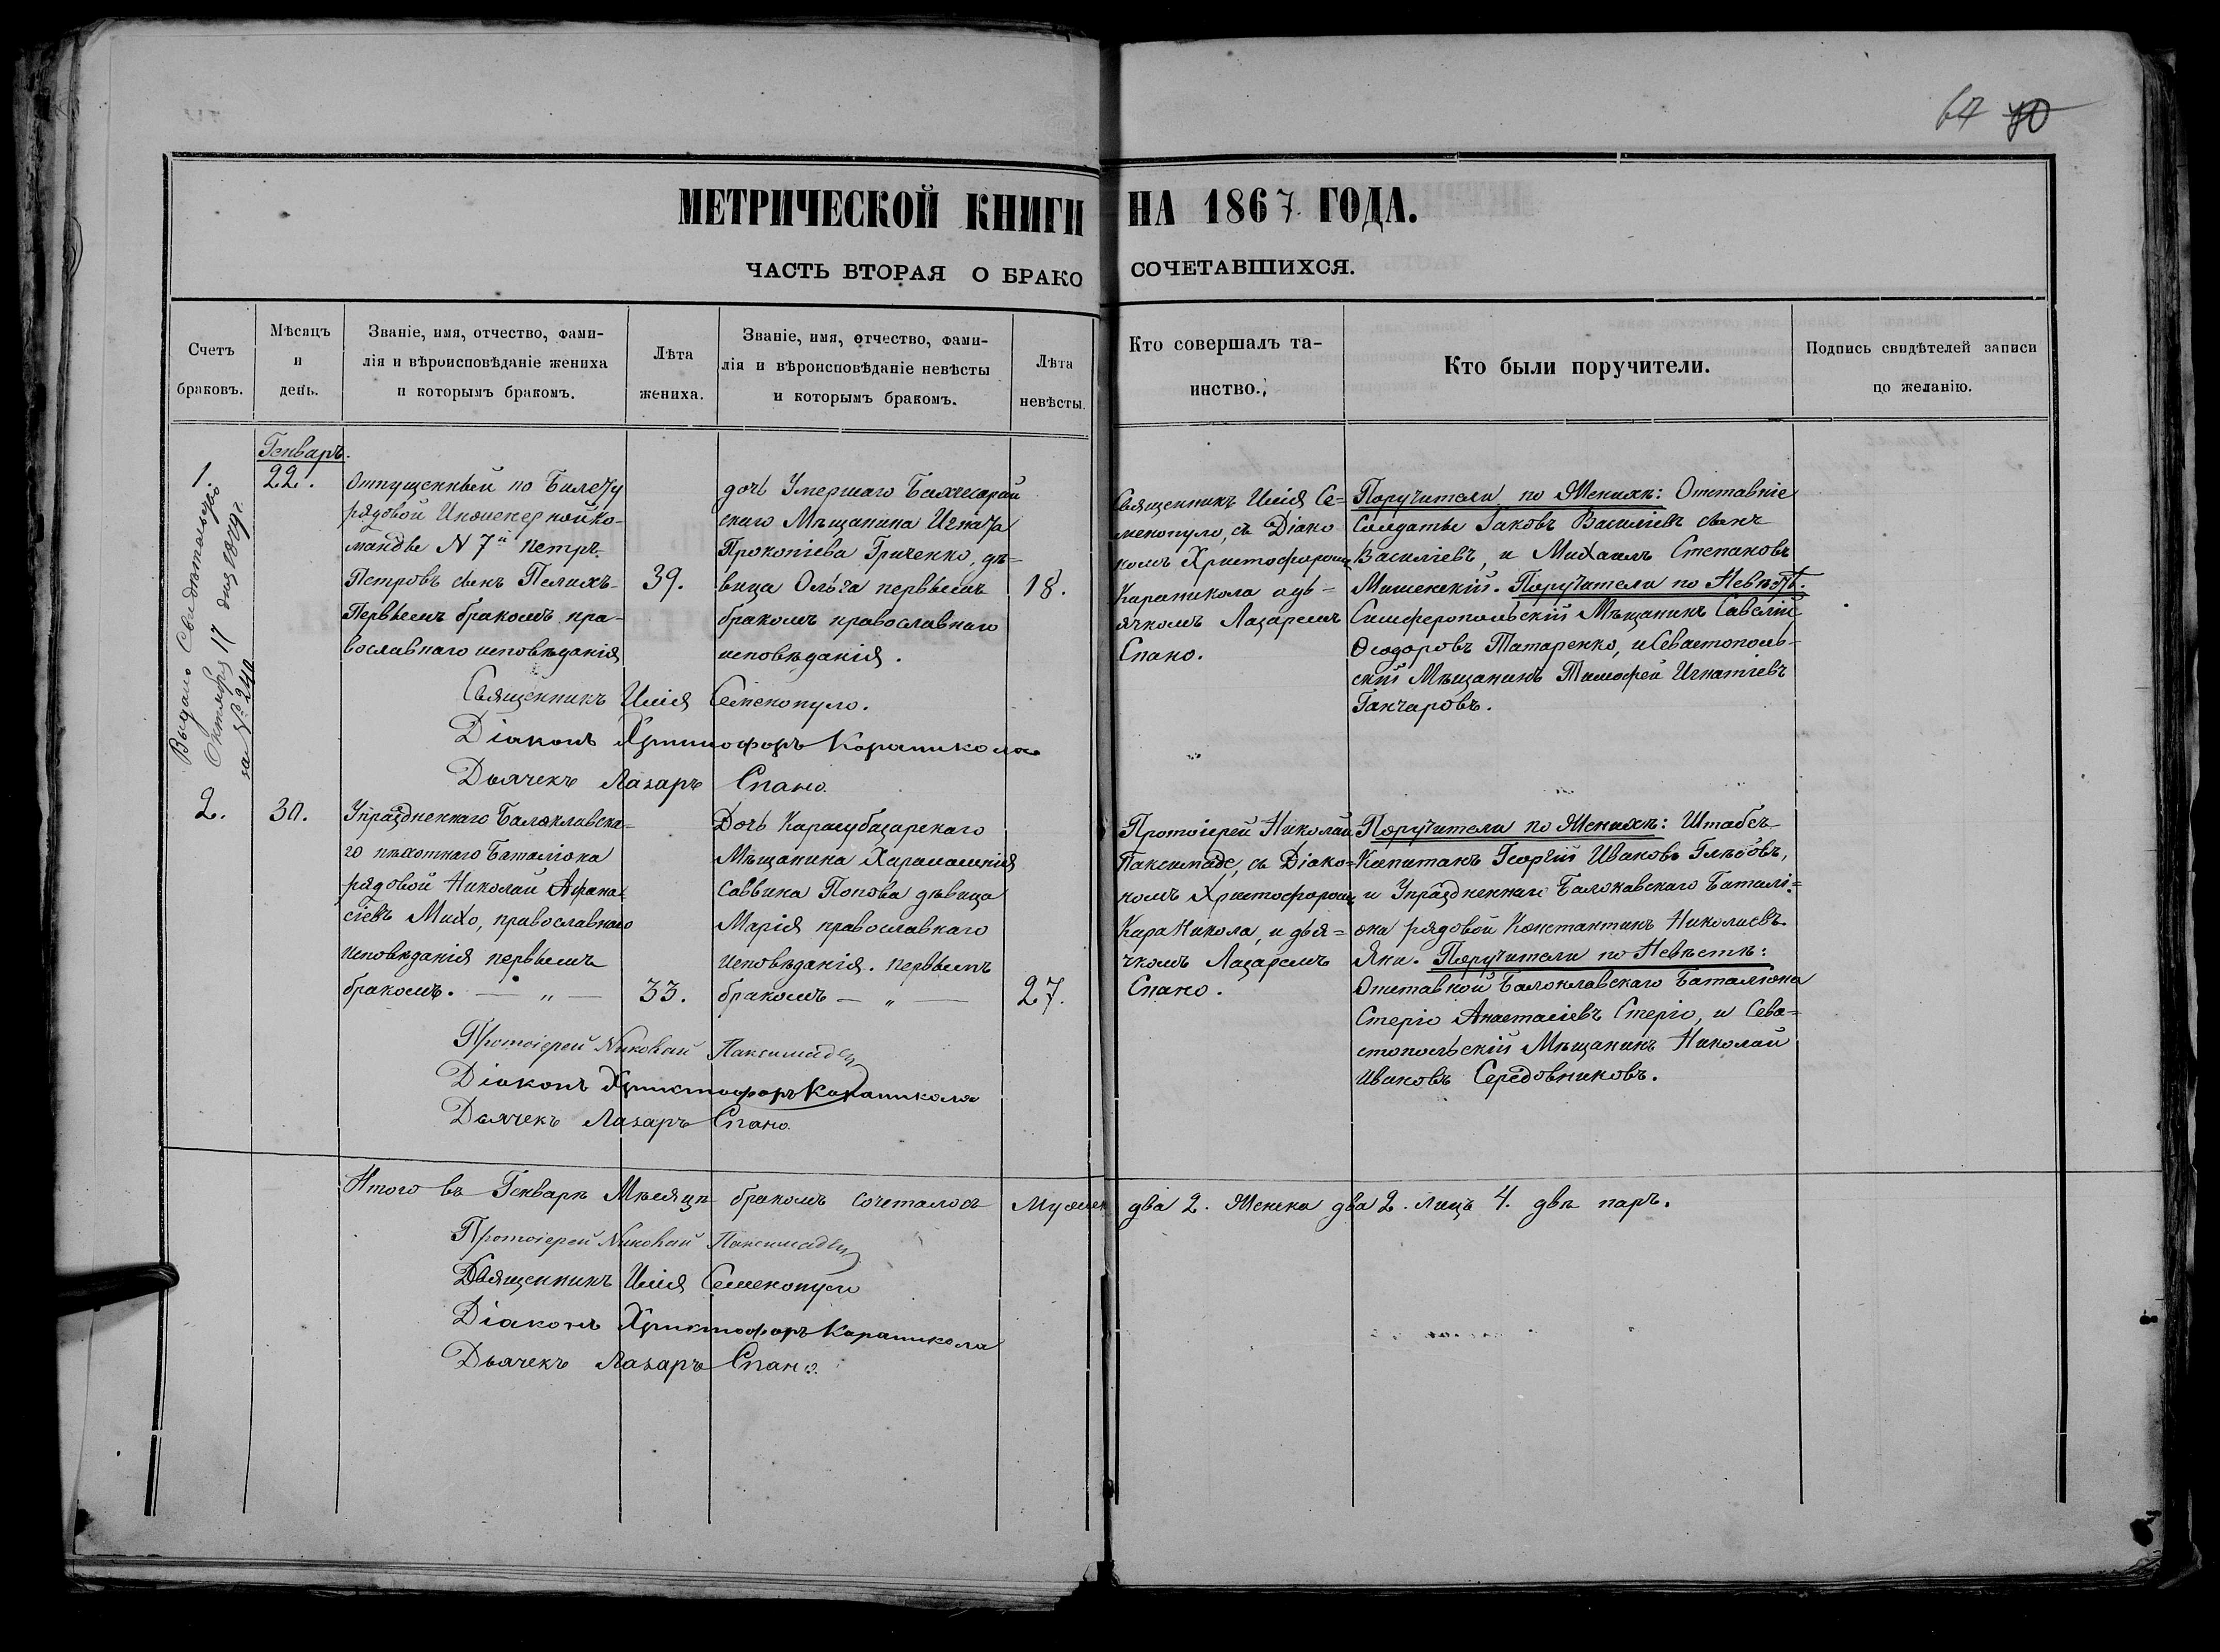 67 80
МЕТРИЧЕСКОЙ КНИГИ НА 1867 ГОДА.
ЧАСТЬ ВТОРАЯ О БРАКО СОЧЕТАВШИХСЯ.
Счетъ
браковъ.
Мѣсяцъ
и
день.
Званіе, имя, отчество, фами-
лія и вѣроисповѣданіе жениха
и которымъ бракомъ.
Лѣта
жениха.
Званіе, имя, отчество, фами-
лія и вѣроисповѣданіе невѣсты
и которымъ бракомъ.
Лѣта
невѣсты.
Кто совершалъ та-
инство.
Кто были поручители.
Подпись свидѣтелей записи
по желанію.
Генварь.
1.
Выдано Свидѣтельство
Октября 17 дня 1879 г.
за № 240
22.
Отпущенный по Билету
рядовой Инженерной Ко-
манды N 7й Петръ
Петровъ сынъ Пелихъ
Первымъ бракомъ пра-
вославнаго исповѣданія
39.
дочь Умершаго Бахчесарай
скаго Мѣщанина Игната
Прокопіева Гриченко, дѣ-
вица Ольга первымъ
бракомъ православнаго
исповѣданія.
18.
Священникъ Илія Се-
менопуло, съ Діако
номъ Христофоромъ
Караникола и дь-
ячкомъ Лазаремъ
Спано.
Поручители по Женихѣ: Отставніе
Солдаты Іаковъ Василіевъ сынъ
Василіевъ, и Михаилъ Степановъ
Мишенскій. Поручители по Невѣстѣ.
Симферопольскій Мѣщанинъ Савелій
Ѳеодоровъ Татаренко, и Севастополь-
скій Мѣщанинъ Тимофей Игнатіевъ
Ганчаровъ.
Священникъ Илія Семенопуло.
Діаконъ Христофоръ Караникола
Дьячекъ Лазарь Спано.
2.
30.
Упраздненнаго Балаклавска-
го пѣхотнаго Баталіона
рядовой Николай Афана-
сіевъ Михо, православнаго
исповѣданія первымъ
бракомъ. — „ —
33.
Дочь Карасубазарскаго
Мѣщанина Харалампія
Саввина Попова дѣвица
Марія православнаго
исповѣданія. первымъ
бракомъ — „ —
27.
Протоіерей Николай
Паксимаде, съ Діако-
номъ Христофоромъ
Кара Никола, и дья-
чкомъ Лазаремъ
Спано.
Поручители по Женихѣ: Штабсъ
Капитанъ Георгій Ивановъ Глѣбовъ,
и Упраздненнаго Балокавскаго Баталі-
она рядовой Константинъ Николаевъ
Яни. Поручители по Невѣстѣ:
Отставной Балоклавскаго Баталіона
Стеріо Анастасіевъ Стеріо, и Сева-
стопольскій Мѣщанинъ Николай
Ивановъ Середовниковъ.
Протоіерей Николай Паксимадеи
Діаконъ Христофоръ Караникола
Дьячекъ Лазарь Спано.
Итого въ Генварѣ Мѣсяцѣ бракомъ сочеталось Мужеск два 2. Женска два 2. лицъ 4. двѣ паръ.
Протоіерей Николай Паксимадеи
Священникъ Илія Семенопуло
Діаконъ Христофоръ Караникола
Дьячекъ Лазарь Спано.